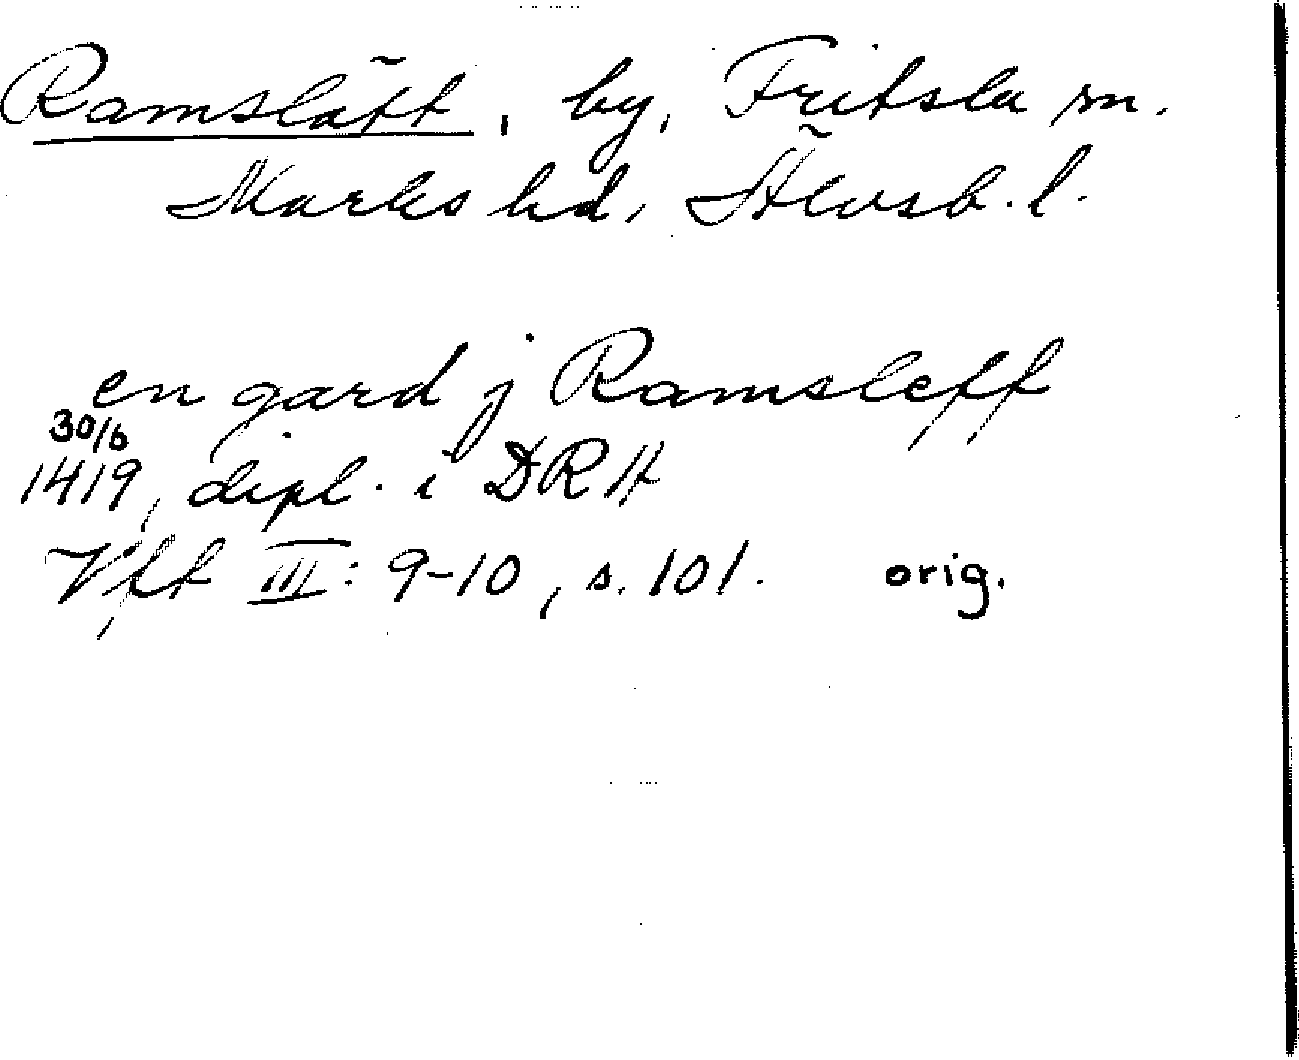 Ramslätt, by, Fritsla sn.
Marks hd, Älvsb. l.
en gard j Ramsleff
30/6
1419, dipl. i DRA
Vff III: 9-10, s. 101. orig.